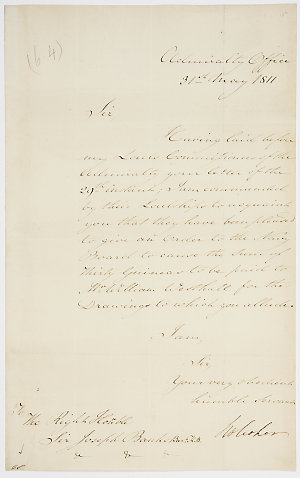 (64)
Admiralty Office
31st May 1811
Sir
Having laid before
my Lords Commissioners of the
Admiralty your letter of the
29th instant; I am commanded
by their Lordships to acquaint
you that they have been pleased
to give an Order to the Navy
Board to cause the Sum of
Thirty Guineas to be paid to
Mr William Westall for the
Drawings to which you allude.
I am,
Sir,
Your very obedient
humble Servant
To
The Right Honble
Sir Joseph Banks